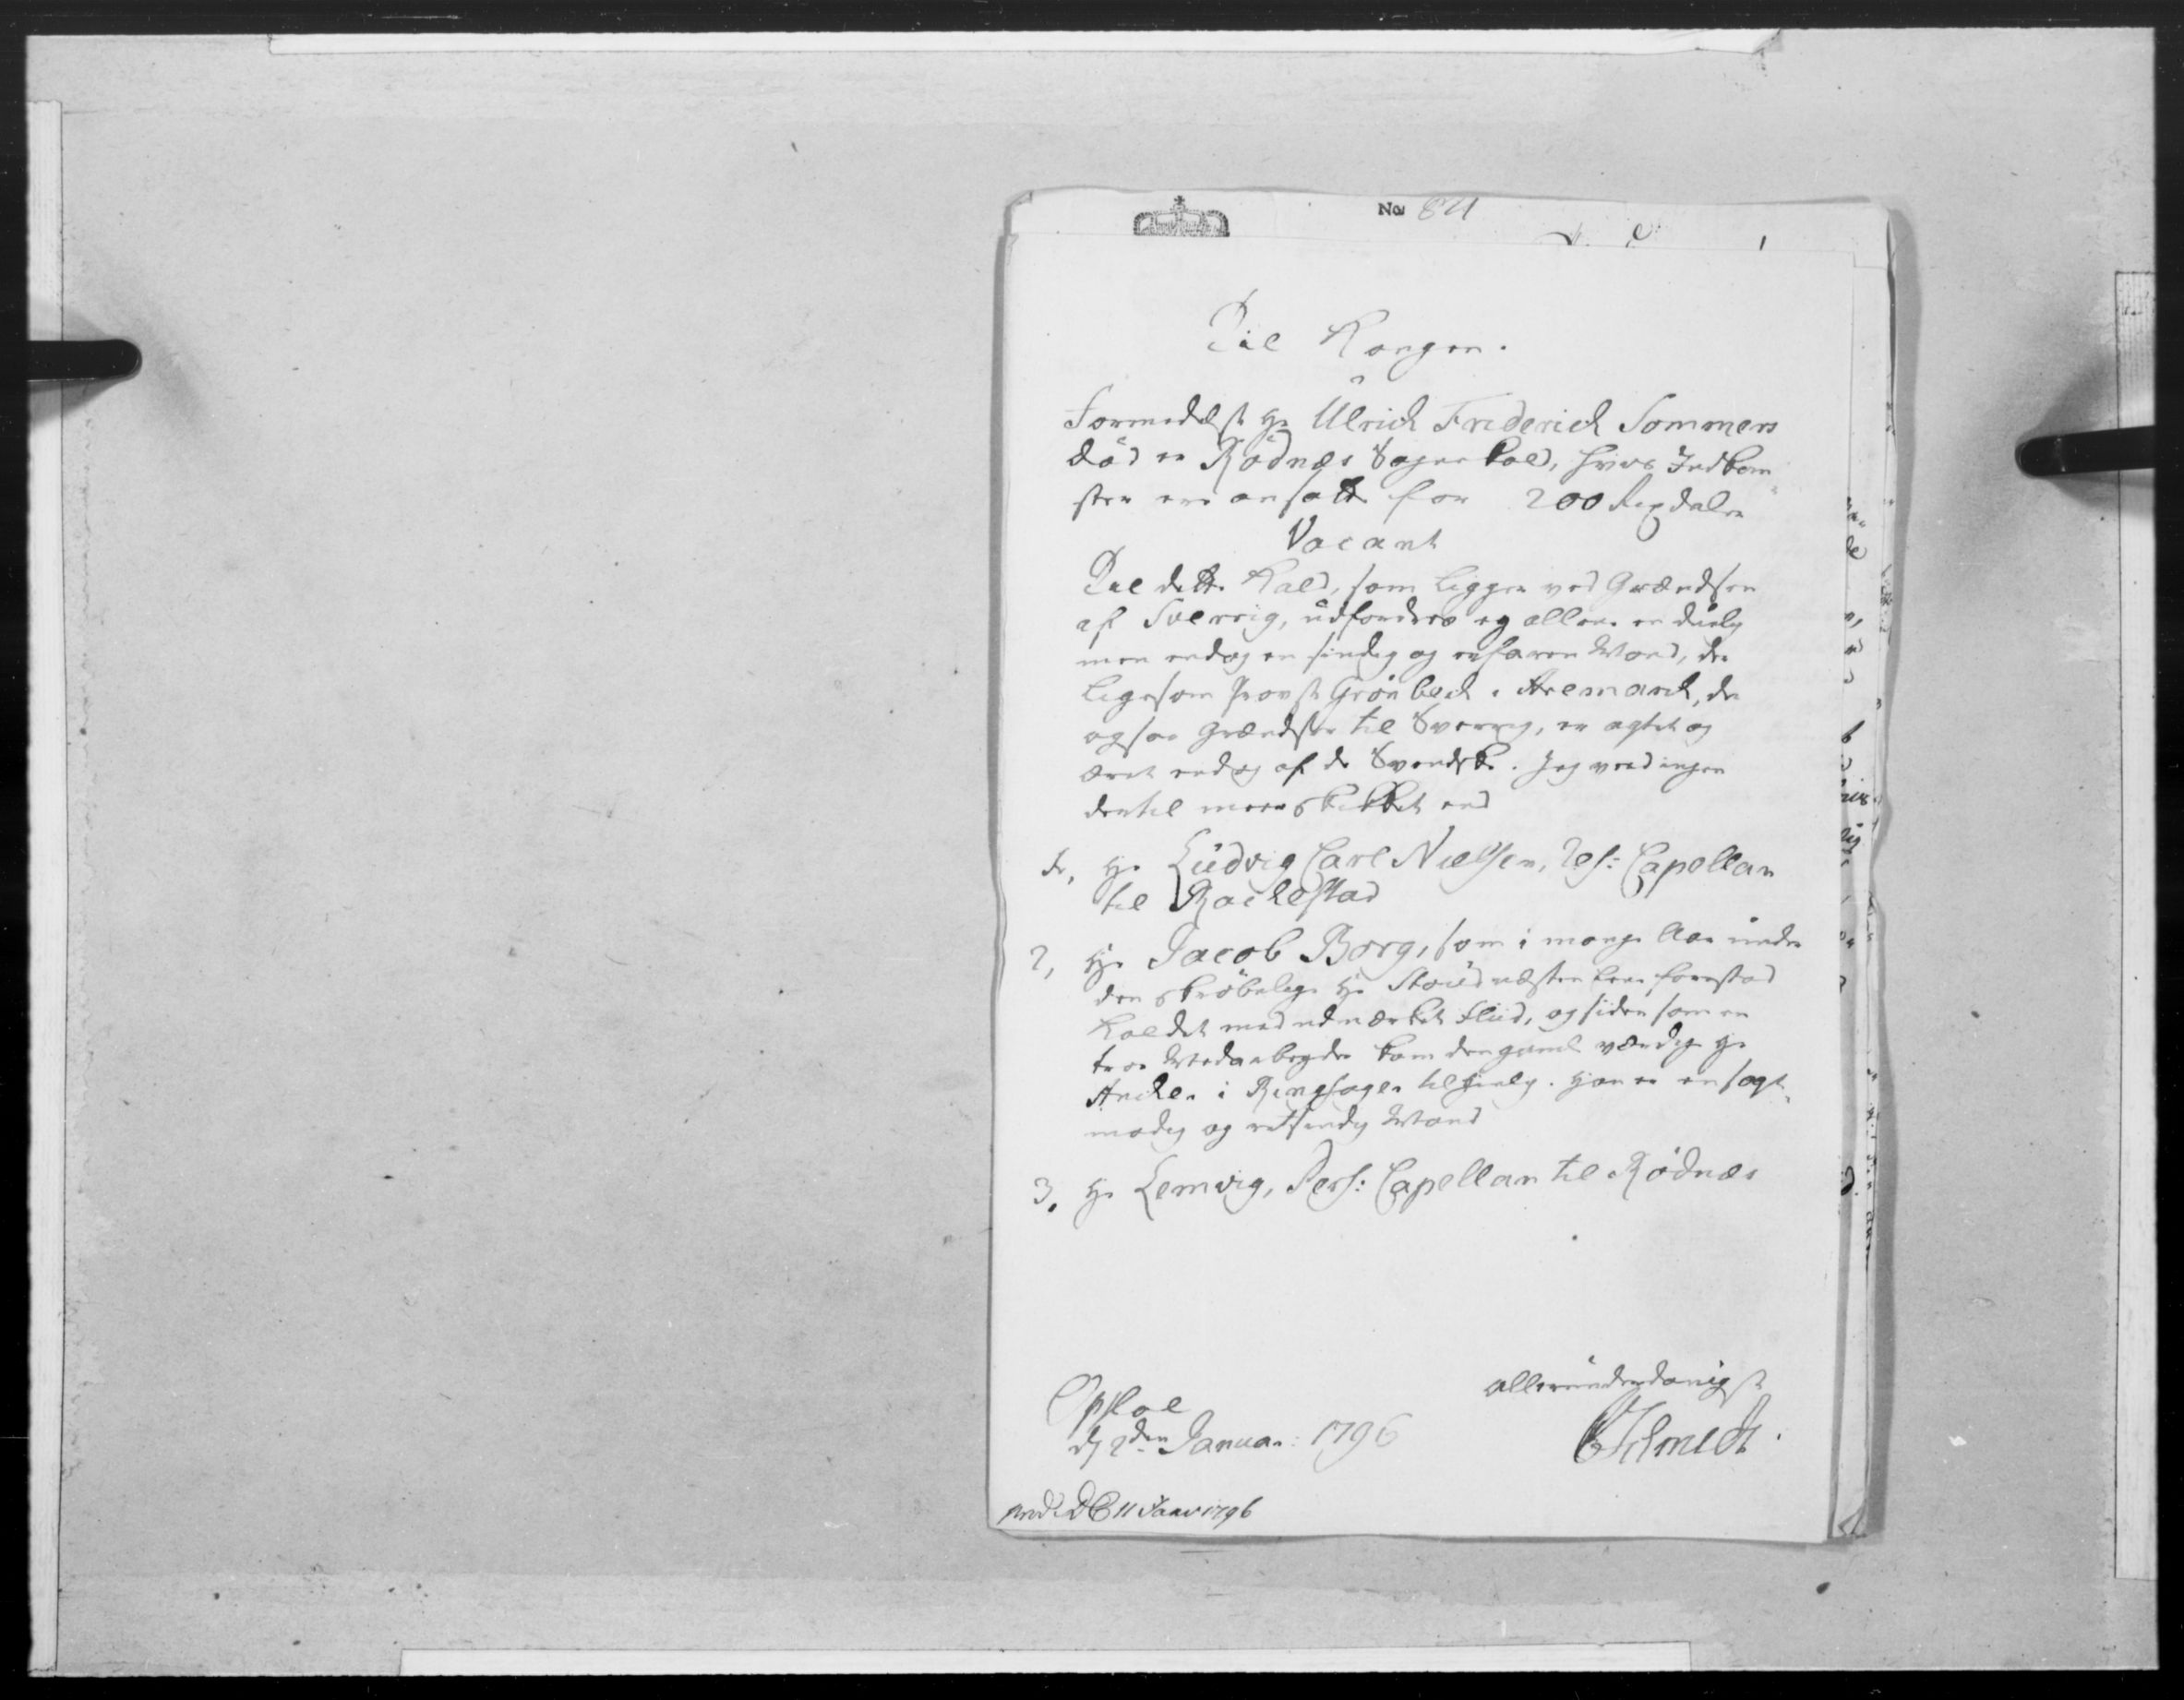 No 84
Til Kongen.
Formedelst Hr Ulrich Friderich Sommers
död er Rödnæs Sognekald, hvis Indkom-
ster ere ansatte for 200 Rigsdaler
Vacant
Til dette Kald, som ligger ved Grændsen
af Sverrig, udfordres ej allene en duelig
men endog en sindig og erfaren Mand, der
ligesom Provst Grönbeck i Aremarck, der
ogsaa grændser til Sverrig, er agtet og
æret endog af de Svendske. Jeg veed ingen
dertil meere skikket end
1, Hr Ludvig Carl Nielsen, Res: Capellan
til Rackestad
2, Hr Jacob Borg, som i mange Aar under
den skröbelige Hr forestod
Kaldet med udmærket Fliid, og siden som en
troe Medarbeyder kom den gamle værdige Hr
Ancher i Ringsager til Hielp. Han er en sagt-
modig og retsindig Mand
3, Hr Lemvig, Pers: Capellan til Rödnæs
Opsloe
d 2den Januar: 1796
allerunderdanigst
CSchmidt.
præs. D C 11 Janv 1796